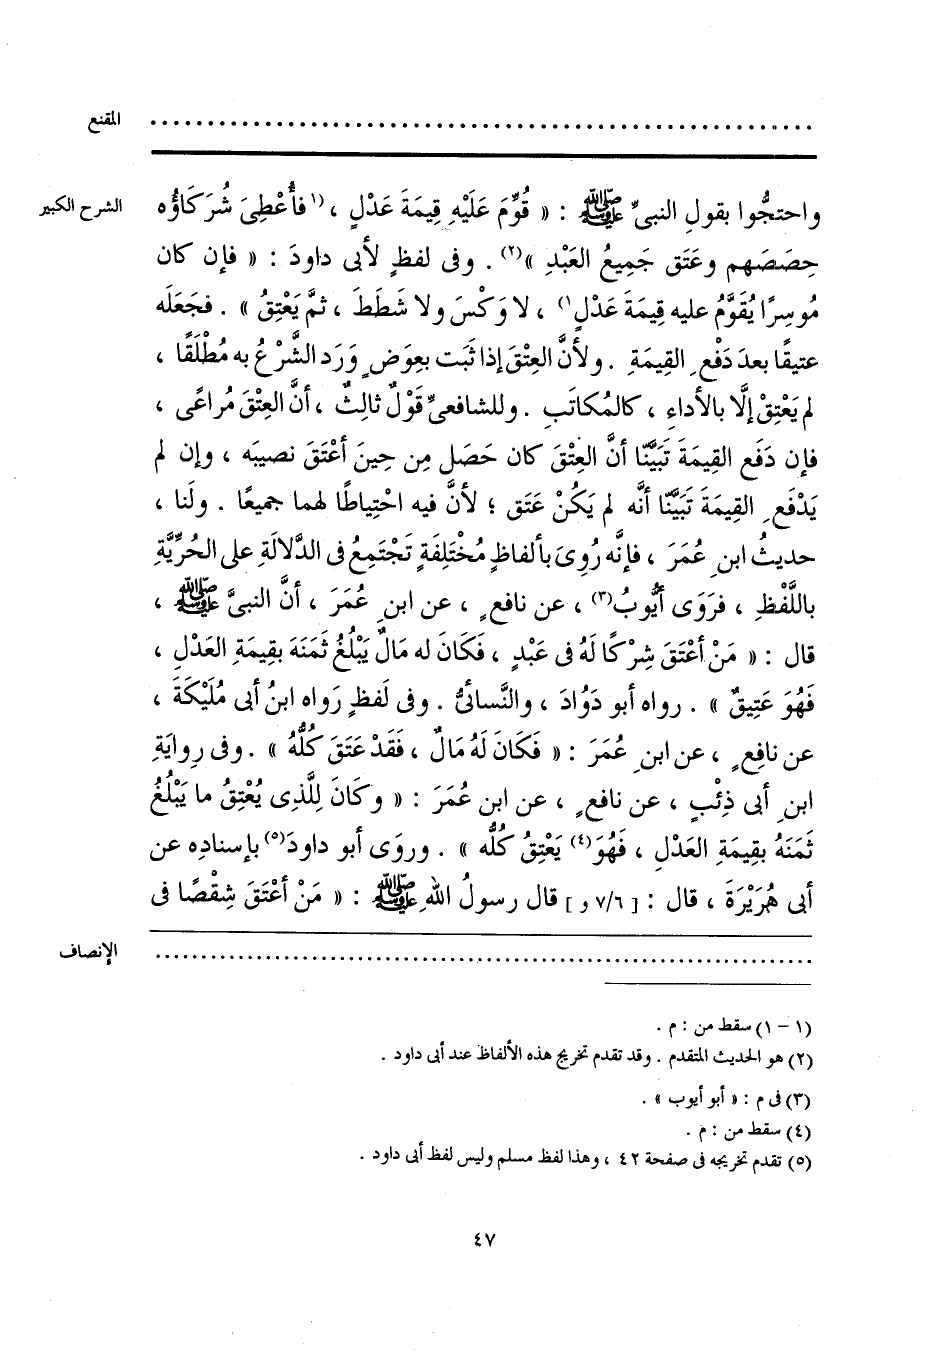 المقنع ............................................................
الشرح الكبير واحتجُّوا بقولِ النبىِّ ﷺ : « قُوِّمَ عَلَيْهِ قِيمَةَ عَدْلٍ ، (١فأُعْطِىَ شُرَكَاؤُه
حِصَصَهم وعَتَق جَمِيعُ العَبْدِ »(٢) . وفى لفظٍ لأبى داودَ : « فإن كان
مُوسِرًا يُقَوَّمُ عليه قِيمَةَ عَدْلٍ١) ، لا وَكْسَ ولا شَطَطَ ، ثمَّ يَعْتِقُ » . فجَعَلَه
عتيقًا بعدَ دَفْعِ القِيمَةِ . ولأنَّ العِتْقَ إذا ثَبَت بعِوَضٍ وَرَد الشَّرْعُ به مُطْلَقًا ،
لم يَعْتِقْ إلَّا بالأداءِ ، كالمُكاتَبِ . وللشافعىِّ قَوْلٌ ثالِثٌ ، أنَّ العِتْقَ مُراعًى ،
فإن دَفَع القِيمَةَ تَبَيَّنَّا أنَّ العِتْقَ كان حَصَل مِن حِينَ أعْتَقَ نصيبَه ، وإن لم
يَدْفَعِ القِيمَةَ تَبَيَّنَّا أنَّه لم يَكُنْ عَتَق ؛ لأنَّ فيه احْتِياطًا لهما جميعًا . ولَنا ،
حديثُ ابنِ عُمَرَ ، فإنَّه رُوِىَ بألفاظٍ مُخْتَلِفَةٍ تَجْتَمِعُ فى الدَّلالَةِ على الحُرِّيَّةِ
باللَّفْظِ ، فرَوَى أيُّوبُ(٣) ، عن نافعٍ ، عن ابنِ عُمَرَ ، أنَّ النبىَّ ﷺ ،
قال : « مَنْ أعْتَقَ شِرْكًا لَهُ فى عَبْدٍ ، فَكَانَ له مَالٌ يَبْلُغُ ثَمَنَهَ بقِيمَةِ العَدْلِ ،
فَهُوَ عَتِيقٌ » . رواه أبو دَوُادَ ، والنَّسائىُّ . وفى لَفظٍ رَواه ابنُ أبى مُلَيْكَةَ ،
عن نافِعٍ ، عن ابنِ عُمَرَ : « فَكَانَ لَهُ مَالٌ ، فَقَدْ عَتَقَ كُلُّهُ » . وفى رِوايَةِ
ابنِ أبى ذِئْبٍ ، عن نافعٍ ، عن ابنِ عُمَرَ : « وكَانَ لِلَّذِى يُعْتِقُ ما يَبْلُغُ
ثَمَنَهُ بقِيمَةِ العَدْلِ ، فَهُوَ(٤) يَعْتِقُ كُلُّه » . وروَى أبو داودَ(٥) بإسنادِه عن
أبى هُرَيْرَةَ ، قال : [ ٧/٦ و ] قال رسولُ اللهِ ﷺ : « مَنْ أعْتَقَ شِقْصًا فى
الإنصاف ............................................................
(١ - ١) سقط من : م .
(٢) هو الحديث المتقدم . وقد تقدم تخريج هذه الألفاظ عند أبى داود .
(٣) فى م : « أبو أيوب » .
(٤) سقط من : م .
(٥) تقدم تخريجه فى صفحة ٤٢ ، وهذا لفظ مسلم وليس لفظ أبى داود .
٤٧